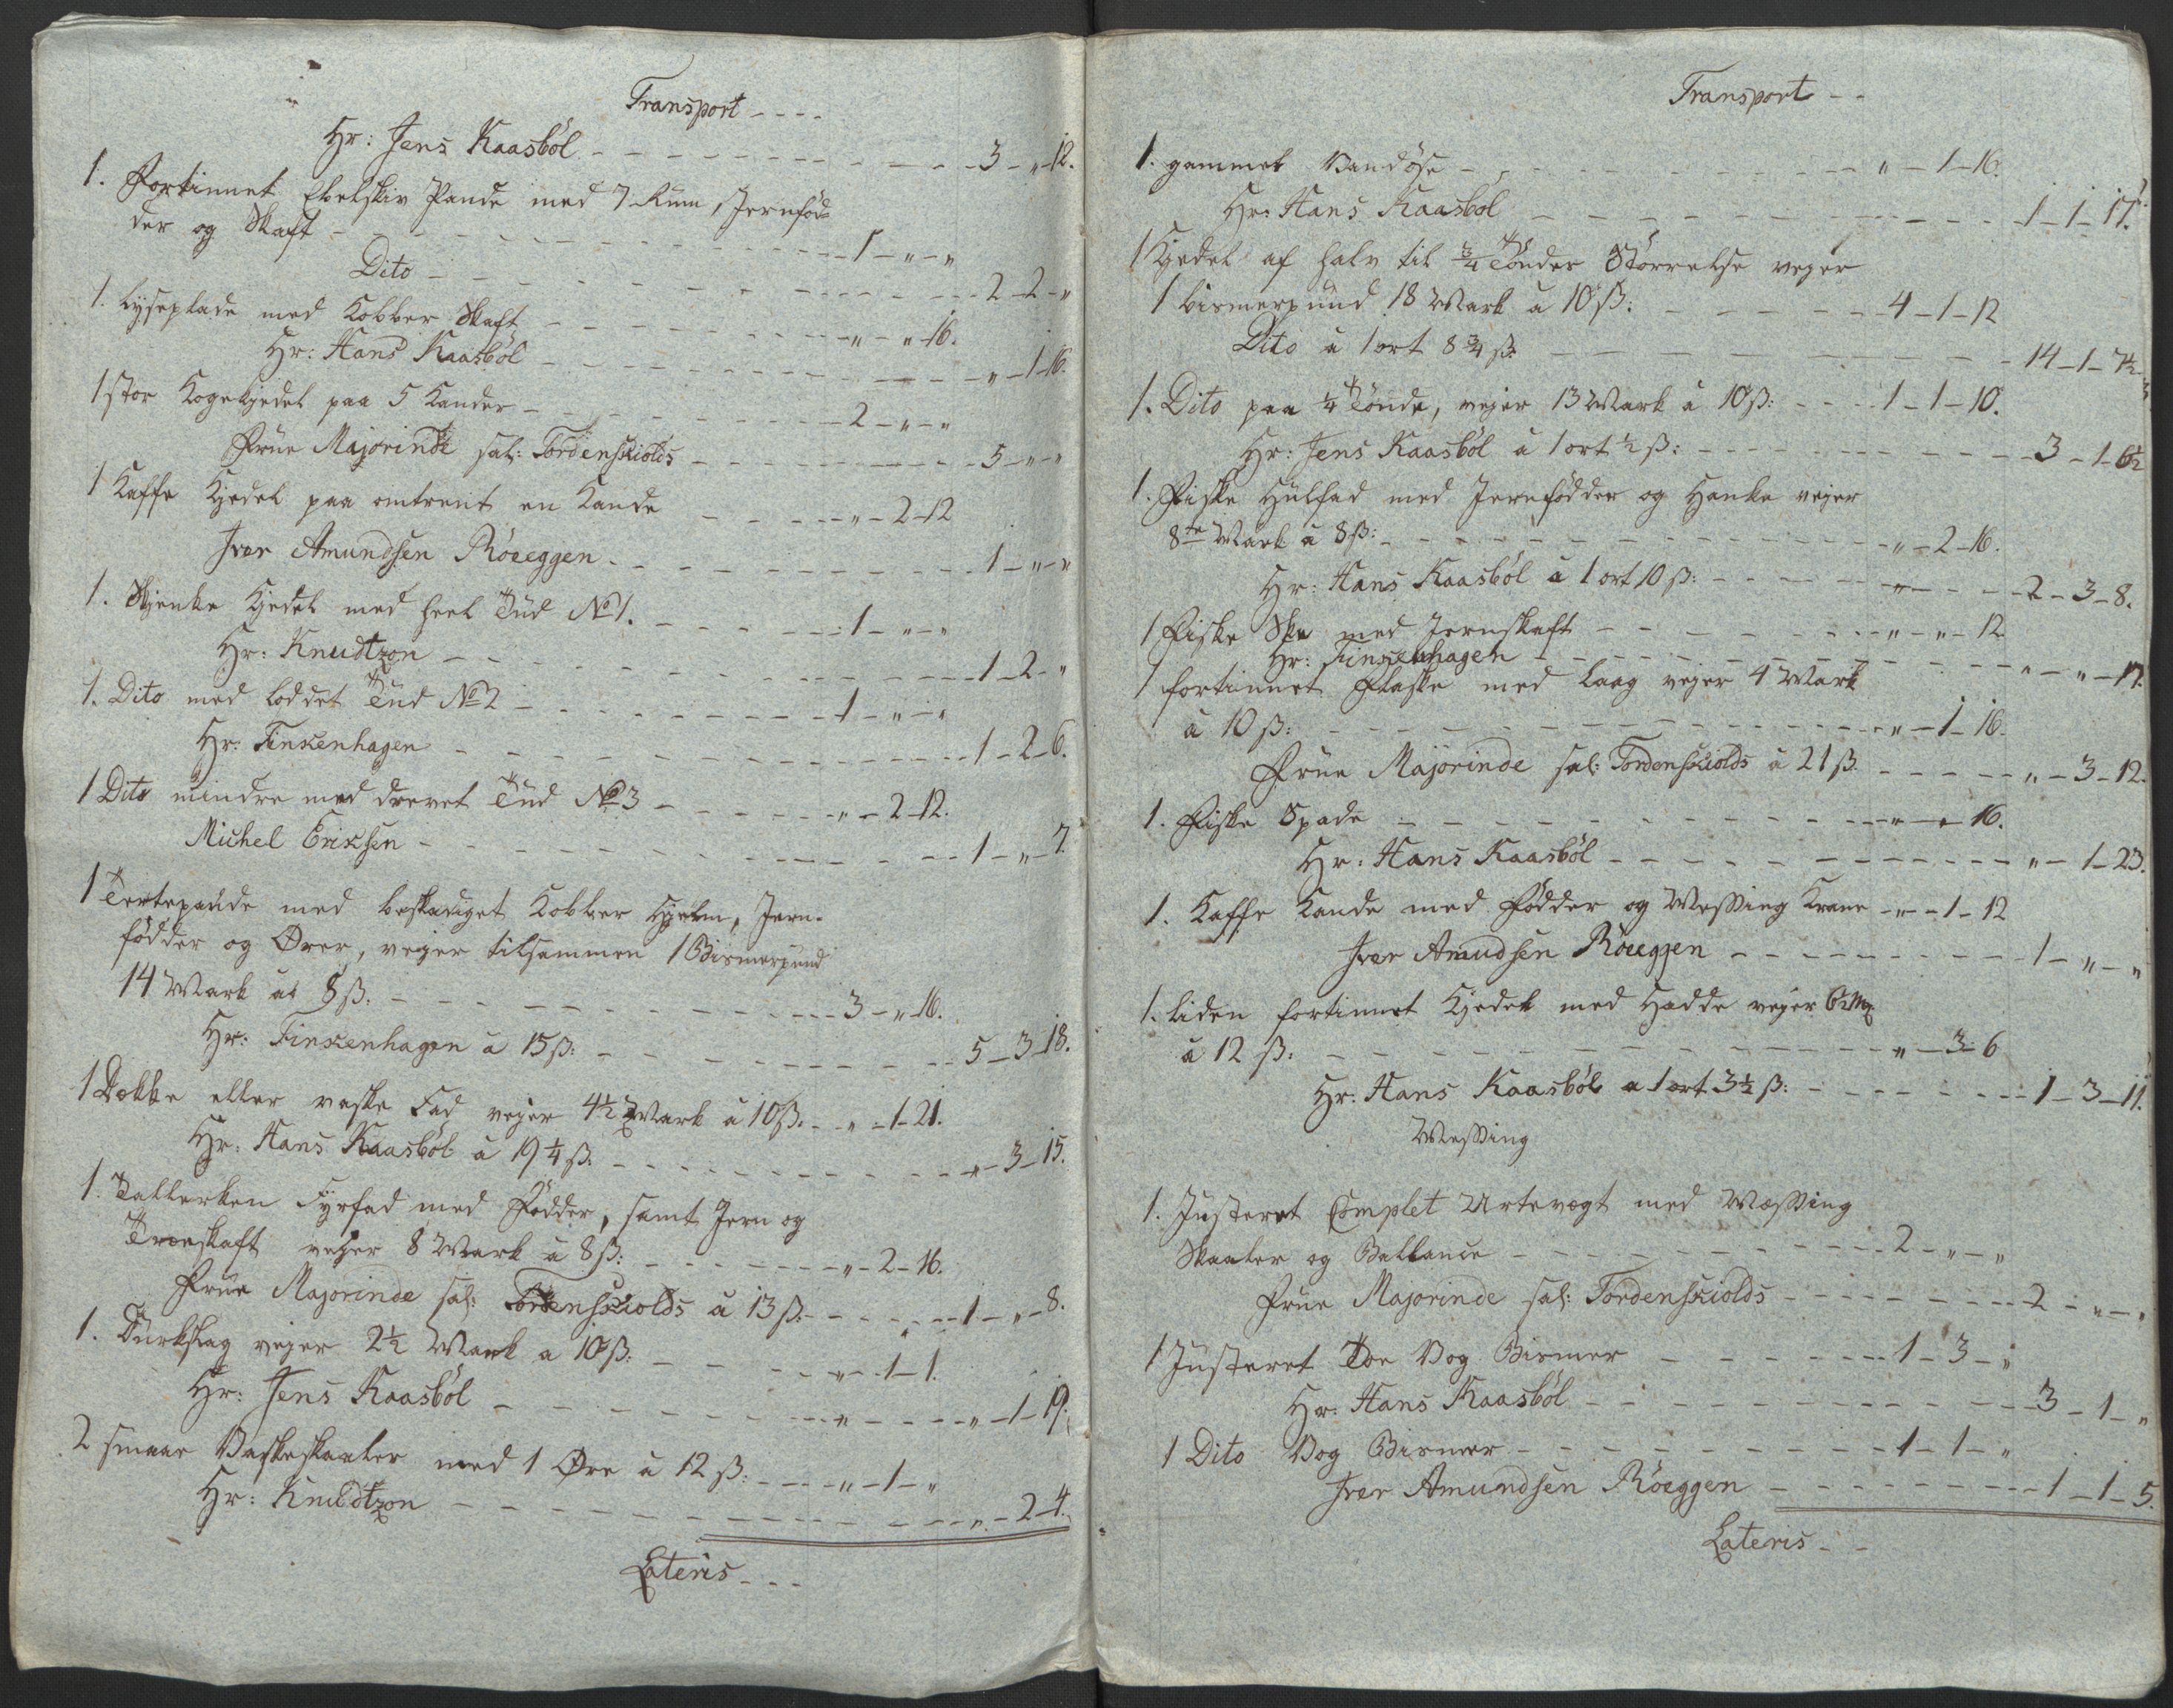 Transport - - - -
Hr: Jens Kaasböl - - - 3 - " - 12.
1. Fortinnet Ebelskiv Pande med 7 Rum, Jernföd=
der og Skaft - - - 1 - " - "
Dito - - - 2 - 2 - "
1. Lyseplade med Kobber Skaft - - - " - " 16.
Hr: Hans Kaasböl - - - " - 1 - 16.
1 stor Kogekjedel paa 5 Kander - - - 2 - " - "
Frue Majorinde sal: Tordenskiolds - - - 5 - " - "
1 Kaffe Kjedel paa omtrent en Kande - - - " - 2 - 12
Iver Amundsen Röeeggen - - - 1 - " - "
1. Skjenke Kjedel med heel Tud No 1. - - - 1 - " - "
Hr: Knudtzon - - - 1 - 2 - "
1. Dito med loddet Tud No 2 - - - 1 - " - "
Hr: Finkenhagen - - - 1 - 2 - 6.
1 Dito mindre med drevet Tud No 3 - - - " - 2 - 12.
Michel Eriksen - - - 1 - " - 7.
1 Tertepande med beskadiget Kobber Hjelm, Jern-
födder og Ører, vejer tilsammen 1 Bismerpund
14 Mark a 8 ß. - - - 3 - " 16.
Hr: Finkenhagen a 15 ß: - - - 5 - 3 - 18.
1 Dække eller vaske Fad vejer 4½ Mark a 10 ß. - - " - 1 - 21.
Hr: Hans Kaasböl a 19¼ ß. - - - " - 3 - 15.
1. Tallerken Fyrfad med Födder, samt Jern og
Træskaft vejer 8 Mark a 8 ß: - - - " - 2 - 16.
Frue Majorinde sal: Tordenskiolds a 13 ß: - - - 1 - " - 8.
1. Durkslag vejer 2½ Mark a 10 ß: - - - " - 1 - 1.
Hr: Jens Kaasböl - - - " - 1 - 19.
2 smaae Vaskeskaaler med 1 Øre a 12 ß: - - - " - 1 - "
Hr: Knudtzon - - - " - 2 - 4.
Lateris - - -
Transport - -
1. gammel Vandöse - - - " - 1 - 16.
Hr: Hans Kaasböl - - - 1 - 1 - 17.
1 Kjedel af halv til ¾ Tönder Störrelse vejer
1 bismerpund 18 Mark a 10 ß: - - - 4 - 1 - 12
Dito a 1 ort 8¾ ß - - - 14 - 1 - 7½
1. Dito paa ¼ Tönde, vejer 13 Mark a 10 ß: - - - 1 - 1 - 10.
Hr: Jens Kaasböl a 1 ort ½ ß: - - - 3 - 1 - 6½
1. Fiske Hulfad med Jernfödder og Hanke vejer
8te Mark a 8 ß: - - - " - 2 - 16.
Hr: Hans Kaasböl a 1 ort 10 ß: - - - 2 - 3 - 8.
1 Fiske Skee med Jernskaft - - - " - " - 12
Hr: Finkenhagen - - - " - " - 17.
1 fortinnet Flaske med Laag vejer 4 Mark
a 10 ß: - - - " - 1 - 16.
Frue Majorinde sal: Tordenskiolds a 21 ß. - - - " - 3 - 12.
1. Fiske Spade - - - " - " - 16.
Hr: Hans Kaasböl - - - " - 1 - 23.
1. Kaffe Kande med Födder og Messing Krane - " - 1 - 12
Iver Amudsen Röeeggen - - - 1 - " - "
1. liden fortinnet Kjedel med Hadde vejer 6½ Mk
a 12 ß: - - - " - 3 - 6
Hr: Hans Kaasböl a 1 ort 3½ ß: - - - 1 - 3 - 11.
Messing
1. Justeret Complet Urtevægt med Messing
Skaaler og Ballance - - - 2 - " - "
Frue Majorinde sal: Tordenskiolds - - - 2 - " - "
1 Justeret Toe Vog Bismer - - - 1 - 3 - "
Hr: Hans Kaasböl - - - 3 - 1 - "
1 Dito Vog Bismer - - - 1 - 1 - "
Iver Amundsen Röeggen - - - 1 - 1 - 5.
Lateris - -